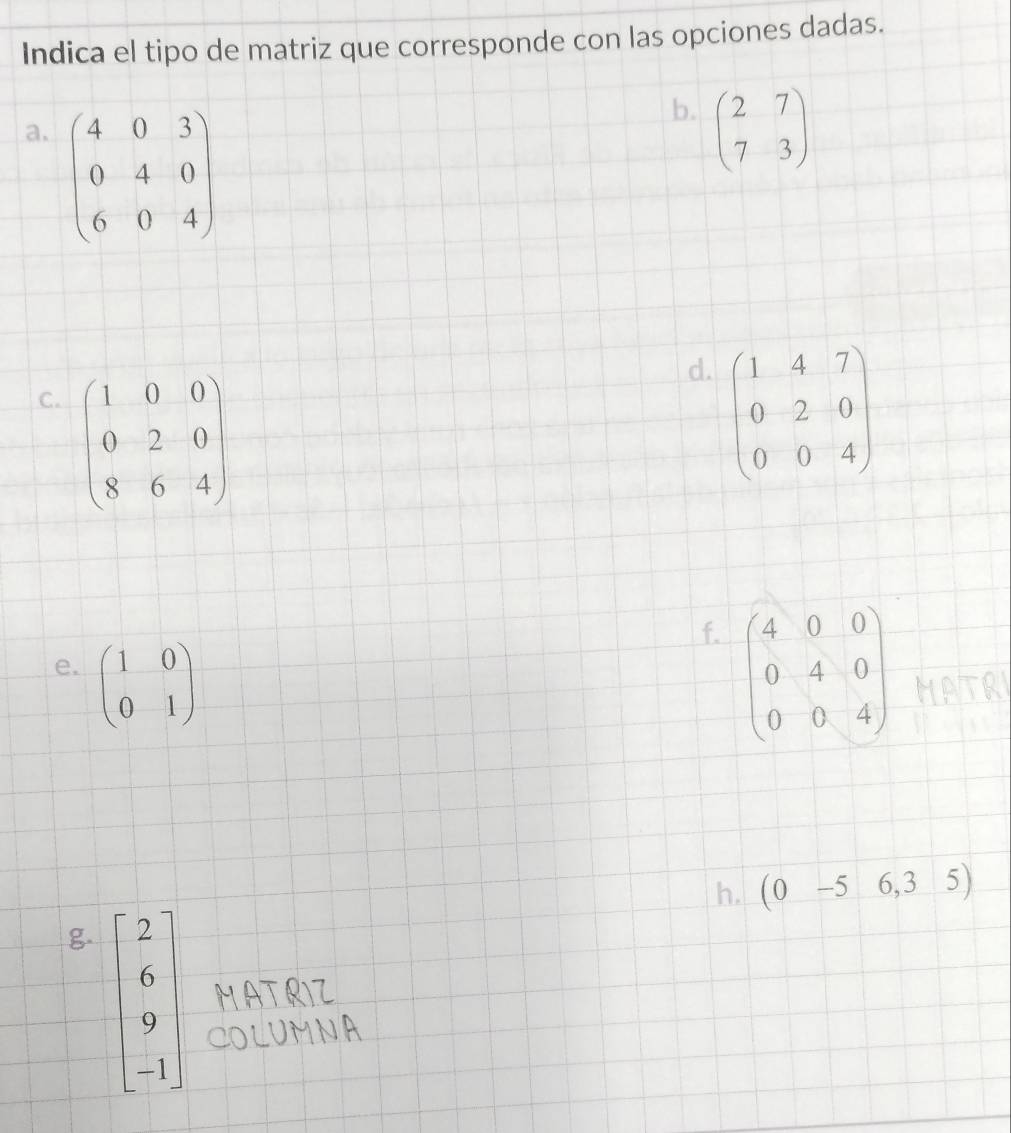 Indica el tipo de matriz que corresponde con las opciones dadas.
a. (4 0 3
0 4 0
6 0 4)
b. (2 7
7 3)
c. (1 0 0
0 2 0
8 6 4)
d. (1 4 7
0 2 0
0 0 4)
e. (1 0
0 1)
f. (4 0 0
0 4 0
0 0 4)
MATRI
g. [2
6
9
-1]
MATRIZ
COLUMNA
h. (0 -5 6,3 5)